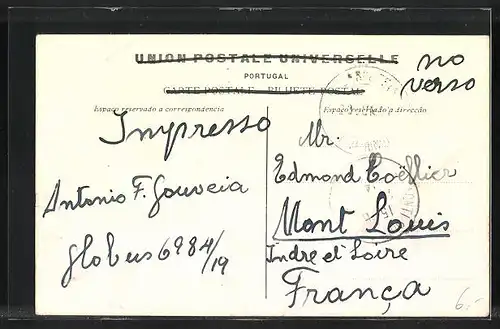 UNION POSTALE UNIVERSELLE
PORTUGAL
CARTE POSTALE BILHETE POSTAL
no
verso
Espaço reservado a correspondencia
Espaço reservado á direcção
Impresso
Antonio F. Gouveia
Globus 6984/19
Mr.
Edmond Coëffier
Mont Louis
Indre et Loire
França
6.-